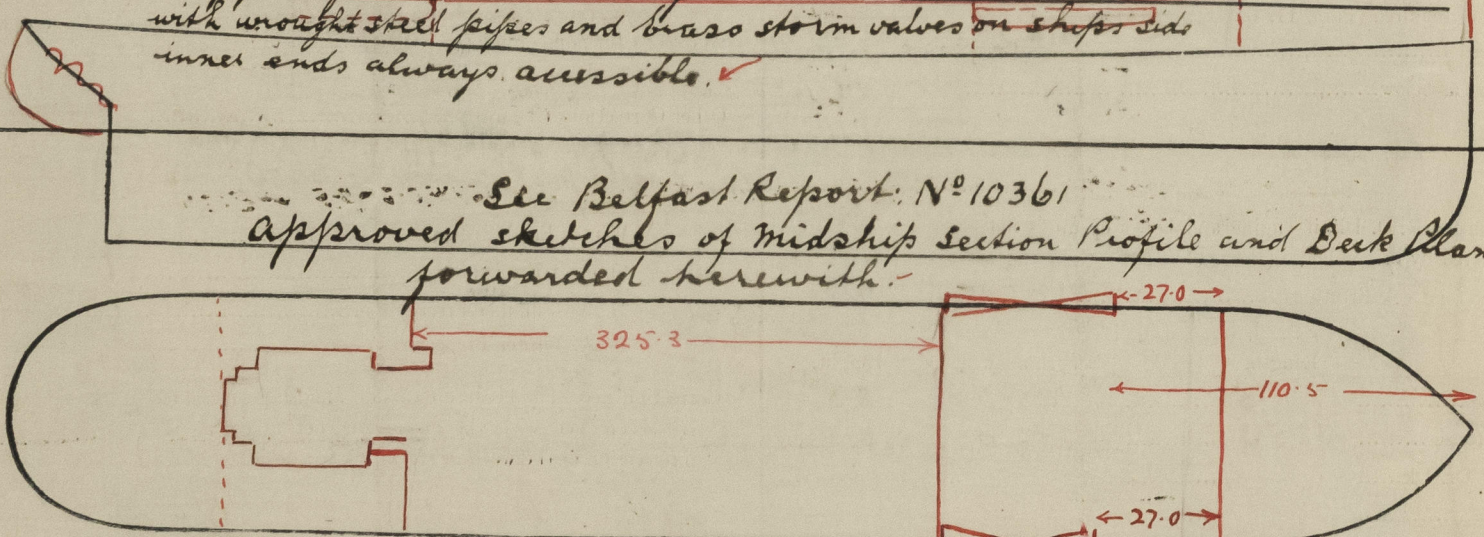 with wrought steel pipes and brass storm valves on ships side
inner ends always accessible.
See Belfast Report. Nº 10361
approved sketches of Midship Section Profile and Deck Plan
forwarded herewith.-
27.0
325.3
110.5
27.0